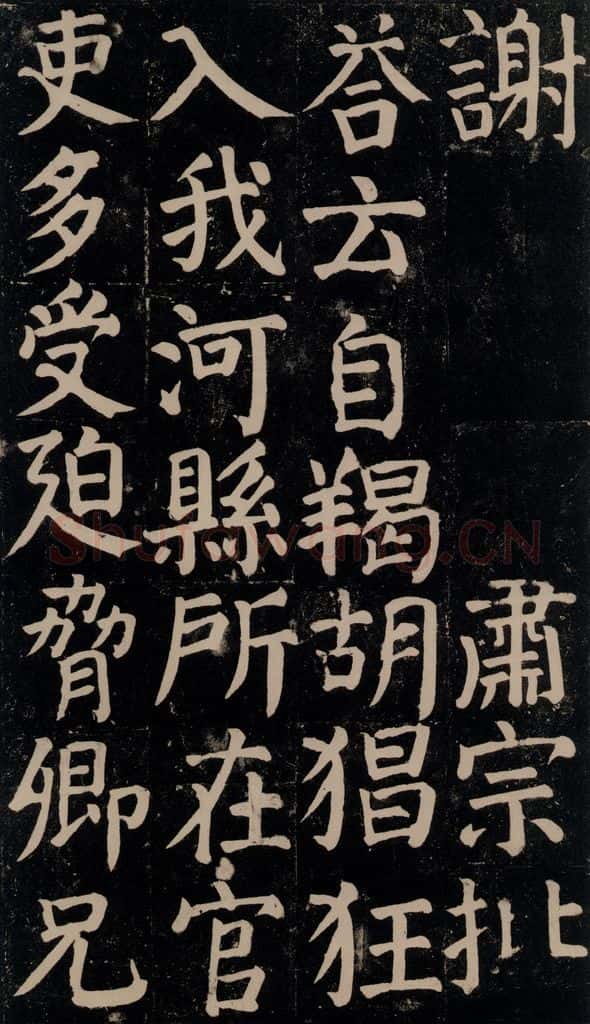 謝 肅宗批
荅云自羯胡猖狂
入我河縣所在官
吏多受廹脅卿兄
Shufawang.CN